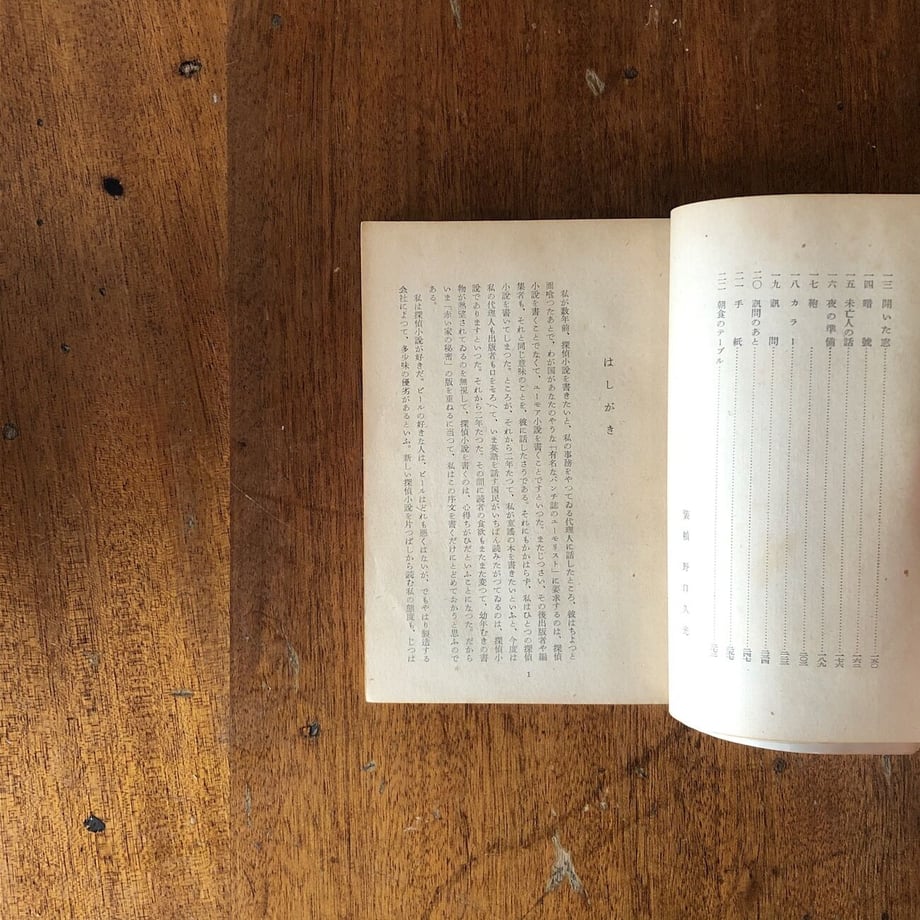 一三 開いた窓
一四 暗號
一五 未亡人の話
一六 夜の準備
一七 袍
一八 カラー
一九 訊問
二〇 訊問のあと
二一 手紙
二二 朝食のテーブル
装幀 野口久光
はしがき
私が数年前、探偵小説を書きたいと、私の事務をやつてゐる代理人に話したところ、彼はちよつと
面喰つたあとで、わが国があなたのやうな「有名なパンチ誌のユーモリスト」に要求するのは、探偵
小説を書くことでなくて、ユーモア小説を書くことですといつた。またじつさい、その後出版者や編
集者も、それと同じ意味のことを、彼に話したさうである。それにもかかはらず、私はひとつの探偵
小説を書いてしまつた。ところが、それから二年たつて、私が童謡の本を書きたいといふと、今度は
私の代理人も出版者も口をそろへて、いま英語を話す国民がいちばん読みたがつてゐるのは、探偵小
説でありますといつた。それから二年たつた。その間に読者の食欲もまたまた変つて、幼年むきの書
物が熱望されてゐるのを無視して、探偵小説を書くのは、心得ちがひだといふことになつた。だから
いま「赤い家の秘密」の版を重ねるに当つて、私はこの序文を書くだけにとどめておかうと思ふので
ある。
私は探偵小説が好きだ。ビールの好きな人は、ビールはどれも悪くはないが、でもやはり製造する
会社によつて、多少味の優劣があるといふ。新しい探偵小説を片つぱしから読む私の態度も、じつは
1